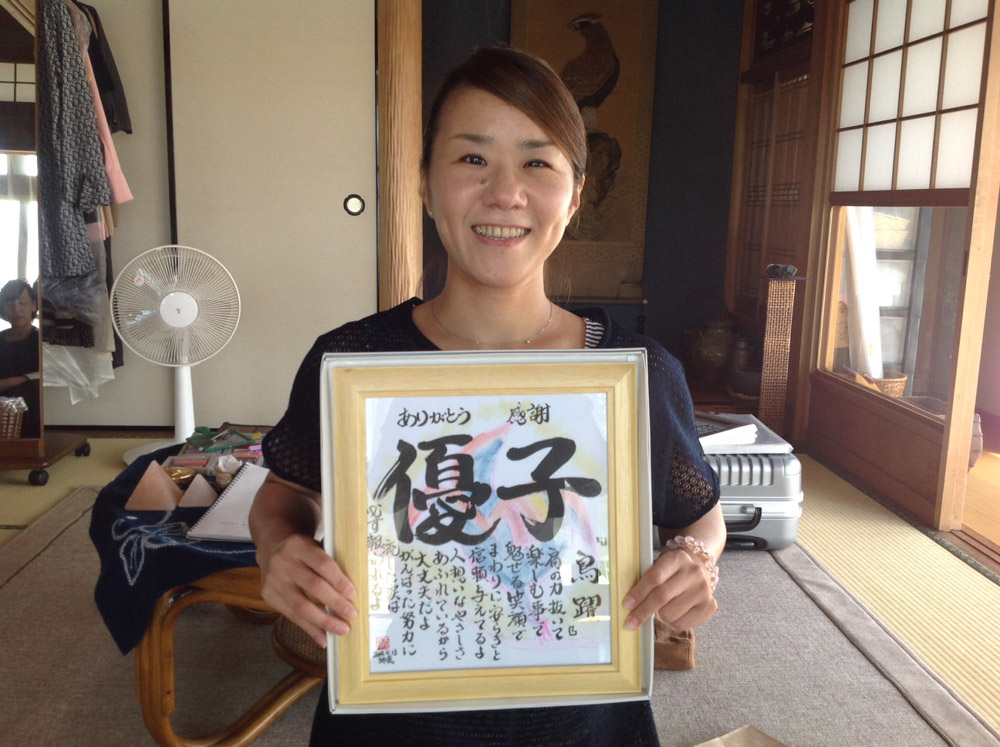 ありがとう 感謝
優子
『鳥躍』
肩の力抜いて
楽しむ事で
魅せる笑顔で
まわりに安らぎと
信頼与えてるよ
人想いなやさしさ
あふれているから
大丈夫だよ
がんばった努力に
流した涙は
必ず報われるよ